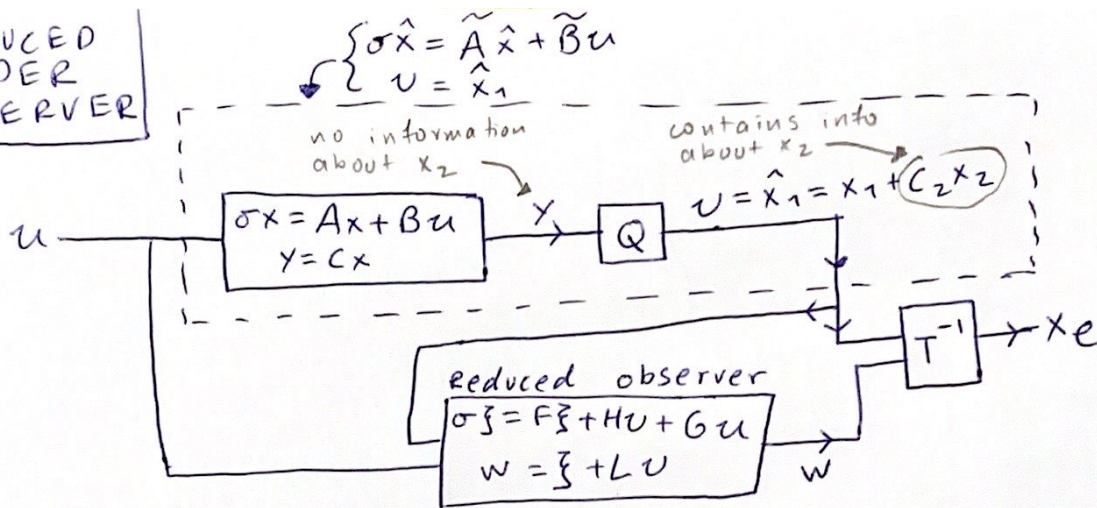 UCED
DER
ERVER
σx̂ = Ãx̂ + B̃u
v = x̂₁
no information
about x₂
contains info
about x₂
u
σx = Ax + Bu
y = Cx
y
Q
v = x̂₁ = x₁ + C₂x₂
T⁻¹
xe
Reduced observer
σξ = Fξ + Hv + Gu
w = ξ + Lv
w